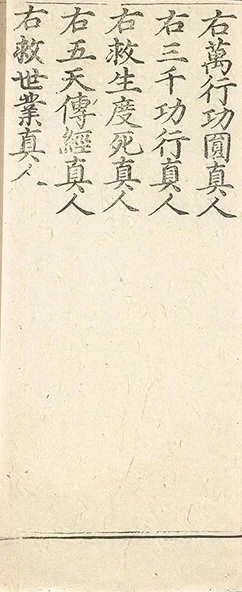 右萬行功圓真人
右三千功行真人
右救生度死真人
右五天傳經真人
右救世業真人